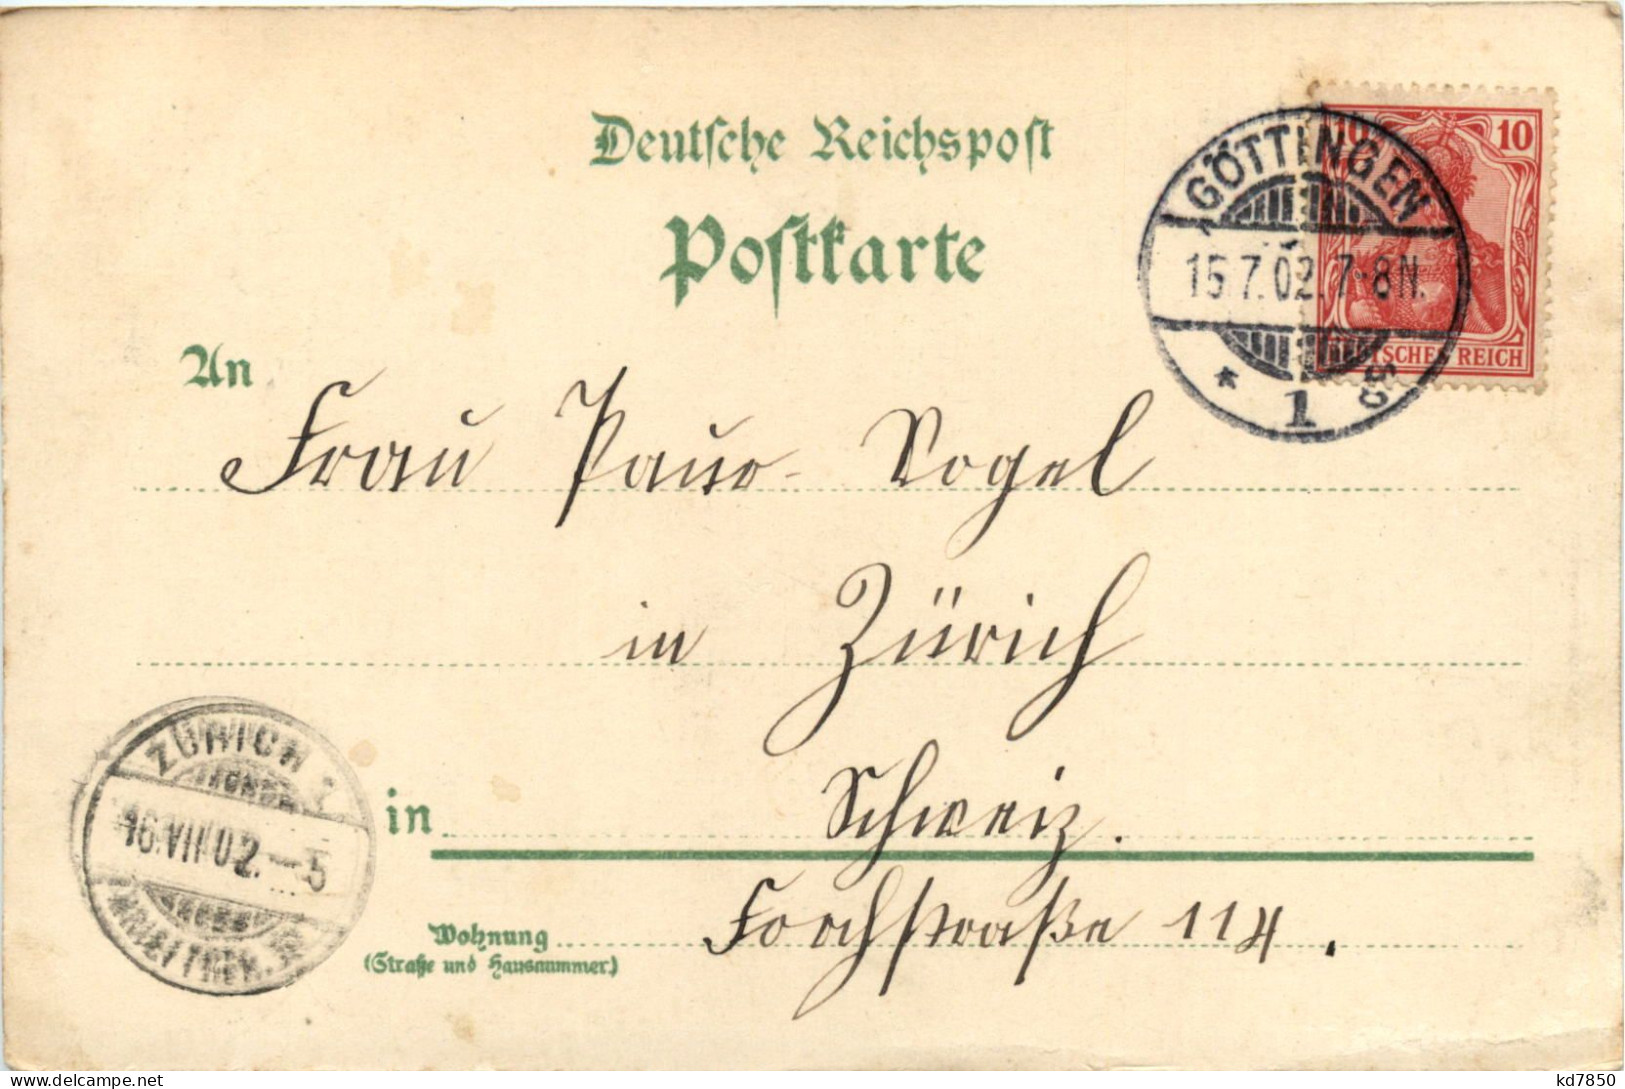 Deutsche Reichspost
Postkarte
10 10
DEUTSCHES REICH
GÖTTINGEN
15.7.02.7-8N.
* 1
An
Frau Paur-Vogel
in Zürich
in Schweiz.
Wohnung Forchstraße 114.
(Straße und Hausnummer.)
ZÜRICH
16.VII.02.—5
kd7850